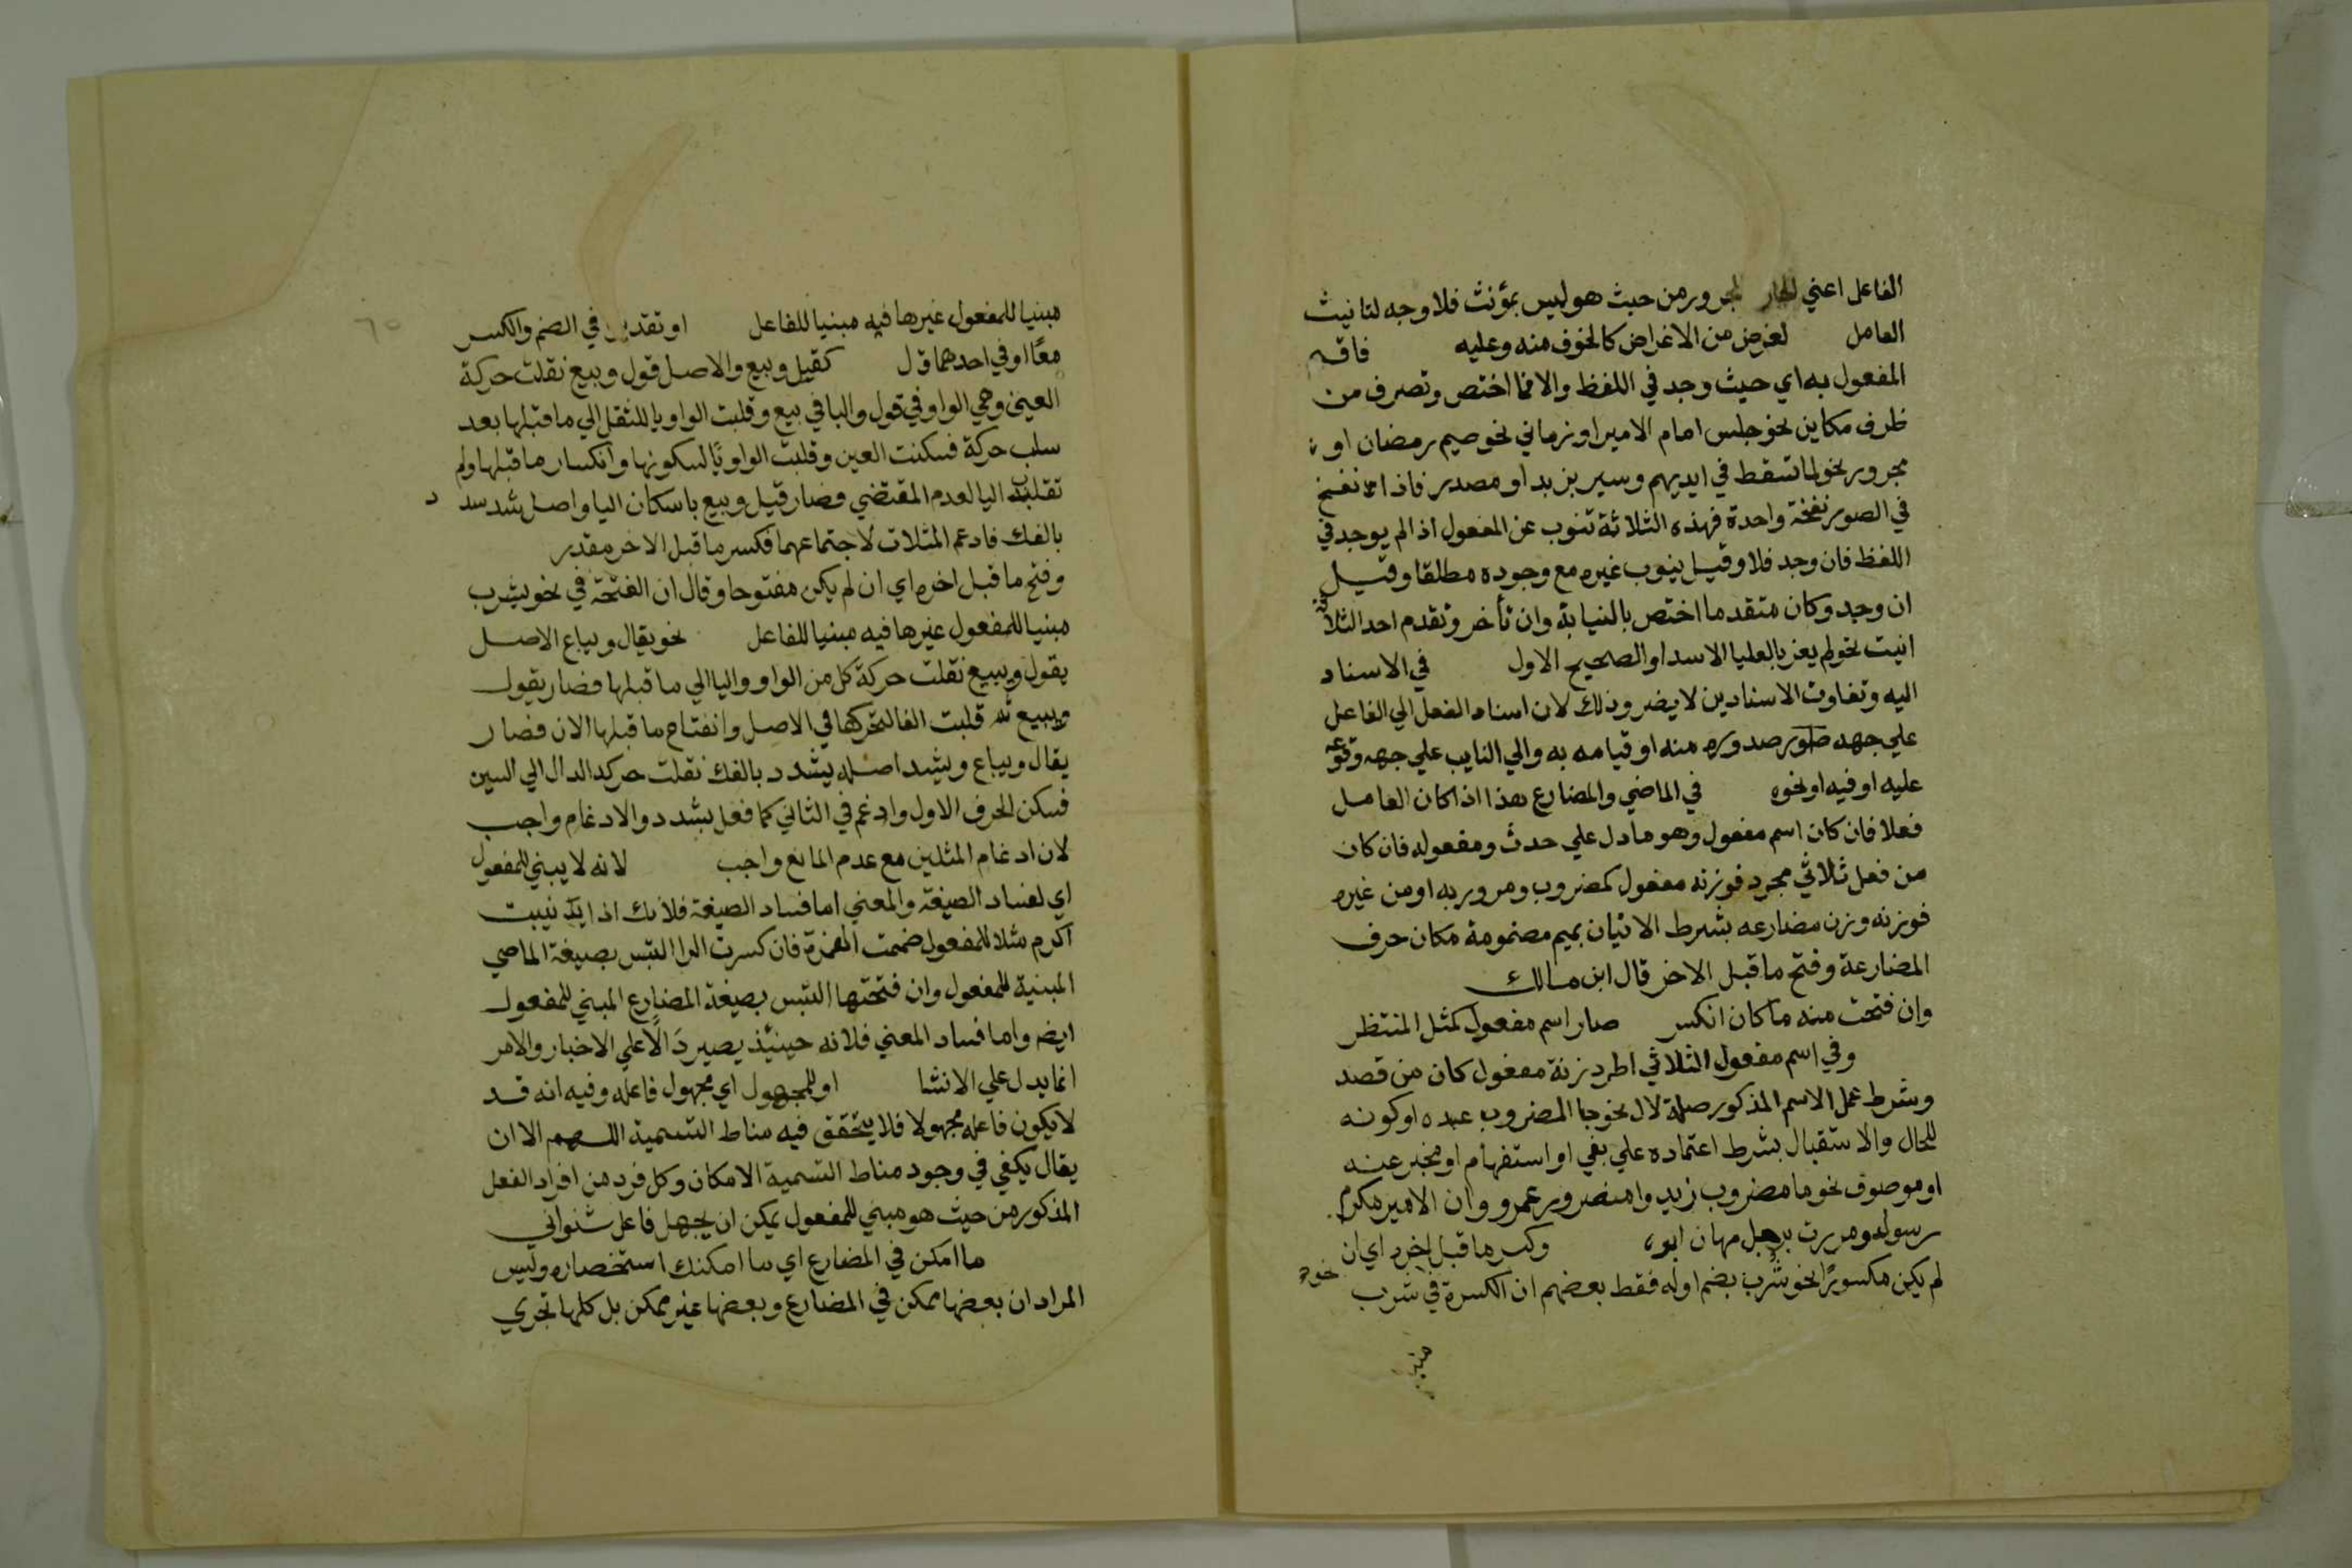 الفاعل اعني الجار المجرور من حيث هو ليس بمؤنث فلا وجه لتانيث
العامل لغرض من الاغراض كالخوف منه وعليه فاقيم
المفعول به اي حيث وجد في اللفظ والا فما اختص وتصرف من
ظرف مكاين نحو جلس امام الامير او زماني نحو صيم رمضان او
مجرور نحو لما سقط في ايديهم وسير بزيد او مصدر فاذا نفخ
في الصور نفخة واحدة فهذه الثلاثة تنوب عن المفعول اذا لم يوجد في
اللفظ فان وجد فلا وقيل ينوب غيره مع وجوده مطلقا وقيل
ان وجد وكان متقدما اختص بالنيابة وان تأخر وتقدم احد الثلاثة
انيت نحو لم يعن بالعليا الاسدا والصحيح الاول في الاسناد
اليه وتفاوت الاسنادين لا يضر وذلك لان اسناد الفعل الي الفاعل
علي جهه صدوره منه او قيامه به والي النايب علي جهه وقوعه
عليه او فيه او نحوه في الماضي والمضارع هذا اذا كان العامل
فعلا فان كان اسم مفعول وهو ما دل علي حدث ومفعوله فان كان
من فعل ثلاثي مجرد فوزنه مفعول كمضروب وممرور به او من غيره
فوزنه وزن مضارعه بشرط الاتيان بميم مضمومة مكان حرف
المضارعة وفتح ما قبل الاخر قال ابن مالك
وان فتحت منه ما كان انكسر صار اسم مفعول كمثل المنتظر
وفي اسم مفعول الثلاثي اطرد زنة مفعول كان من قصد
وشرط عمل الاسم المذكور صلة لال نحو جا المضروب عبده او كونه
للحال والاستقبال بشرط اعتماده علي نفي او استفهام او مخبر عنه
او موصوف نحو ما مضروب زيد وا منصور عمرو وان الامير مكرم
رسوله ومررت برجل مهان ابوه وكسر ما قبل اخره اي ان
لم يكن مكسورًا نحو شُرب بضم اوله فقط بعضهم ان الكسرة في شرب نحوه
مبنيا
٦٥
مبنيا للمفعول غيرها فيه مبنيا للفاعل او تقديرا في الضم والكسر
معًا او في احدهما ق ل كقيل وبيع والاصل قول وبيع نقلت حركة
العين وهي الواو في قول واليا في بيع وقلبت الواو يا للثقل الي ما قبلها بعد
سلب حركة فسكنت العين وقلبت الواو يًا لسكونها وانكسار ما قبلها ولم
تقلب اليا لعدم المقتضي فصار قيل وبيع باسكان اليا واصل شد شدد
بالفك فادغم المثلان لاجتماعهما فكسر ما قبل الاخر مقدر
وفتح ما قبل اخره اي ان لم يكن مفتوحا وقال ان الفتحة في نحو يشرب
مبنيا للمفعول غيرها فيه مبنيا للفاعل نحو يقال ويباع الاصل
يقول ويبيع نقلت حركة كل من الواو واليا الي ما قبلها فصار يقول
ويبيع ثم قلبت الفا لتحركها في الاصل وانفتاح ما قبلها الان فصار
يقال ويباع ويشد اصله يشدد بالفك نقلت حركه الدال الي السين
فسكن الحرف الاول وادغم في الثاني كما فعل بشدد والادغام واجب
لان ادغام المثلين مع عدم المانع واجب لانه لا يبني للمفعول
اي لفساد الصيغة والمعني اما فساد الصيغة فلانك اذا بنيت
اكرم مثلا للمفعول ضممت الهمزة فان كسرت الرا التبس بصيغة الماضي
المبنية للمفعول وان فتحتها التبس بصيغة المضارع المبني للمفعول
ايضه واما فساد المعني فلانه حينئذ يصير دَالًا علي الاخبار والامر
انما يدل علي الانشا او للمجهول اي مجهول فاعله وفيه انه قد
لا يكون فاعله مجهولا فلا يتحقق فيه مناط التسمية اللهم الا ان
يقال يكفي في وجود مناط التسمية الامكان وكل فرد من افراد الفعل
المذكور من حيث هو مبني للمفعول يمكن ان يجهل فاعل شنواني
ما امكن في المضارع اي ما امكنك استحضاره وليس
المراد ان بعضها ممكن في المضارع وبعضها غير ممكن بل كلها تجري